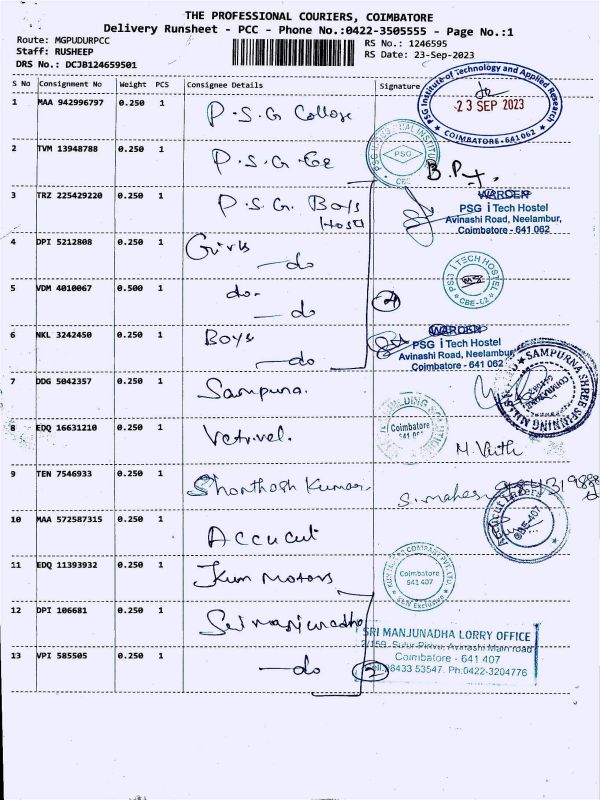 THE PROFESSIONAL COURIERS, COIMBATORE
Delivery Runsheet - PCC - Phone No.:0422-3505555 - Page No.:1
Route: MGPUDURPCC
Staff: RUSHEEP
DRS No.: DCJB124659501
RS No.: 1246595
RS Date: 23-Sep-2023
S No Consignment No Weight PCS Consignee Details Signature
PSG Institute of Technology and Applied Research
23 SEP 2023
COIMBATORE-641062
1 MAA 942996797 0.250 1 P.S.G College
2 TVM 13948788 0.250 1 P.S.G.
PSG
CBE
3 TRZ 225429220 0.250 1 P.S.G. Boys
Host
WARDEN
PSG i Tech Hostel
Avinashi Road, Neelambur,
Coimbatore - 641 062
4 DPI 5212808 0.250 1 Girls
do
PSG i TECH HOSTEL
CBE-62
5 VDM 4010067 0.500 1 do.
do
4
6 NKL 3242450 0.250 1 Boys
do
WARDEN
PSG i Tech Hostel
Avinashi Road, Neelambur,
Coimbatore - 641 062
7 DDG 5042357 0.250 1 Sampuna.
SAMPURNA SHREE SPINNING MILLS
8 EDQ 16631210 0.250 1 Vetrivel.
Coimbatore
641 061
9 TEN 7546933 0.250 1 Shonthosh Kumar.
S. mahes
10 MAA 572587315 0.250 1 Accucut
Accucut
CBE-407
11 EDQ 11393932 0.250 1 Kun Motors
KUN MOTOR COMPANY PVT. LTD.
Coimbatore
641 407
KUN Exclusive
12 DPI 106681 0.250 1 Sri manjunadha
SRI MANJUNADHA LORRY OFFICE
2/159, Sulur Pirivu, Avinashi Main road
Coimbatore - 641 407
Cell:98433 53547. Ph:0422-3204776
13 VPI 585505 0.250 1 do
2